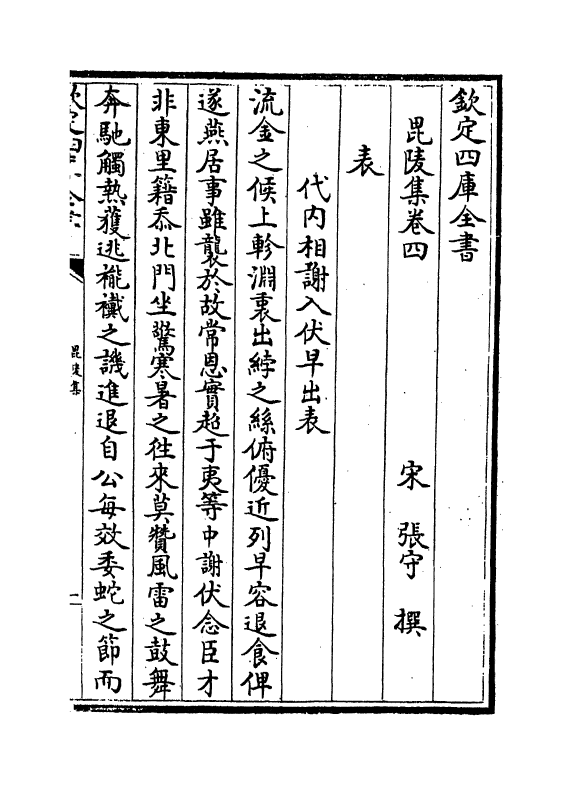 欽定四庫全書
毘陵集卷四
宋 張守 撰
表
代内相謝入伏早出表
流金之候上軫淵衷出綍之絲俯優近列早容退食俾
遂燕居事雖襲於故常恩實超于夷等中謝伏念臣才
非東里籍忝北門坐驚寒暑之往來莫贊風雷之鼓舞
奔馳觸熱獲逃褦襶之譏進退自公每效委蛇之節而
欽定四庫全書
毘陵集
一